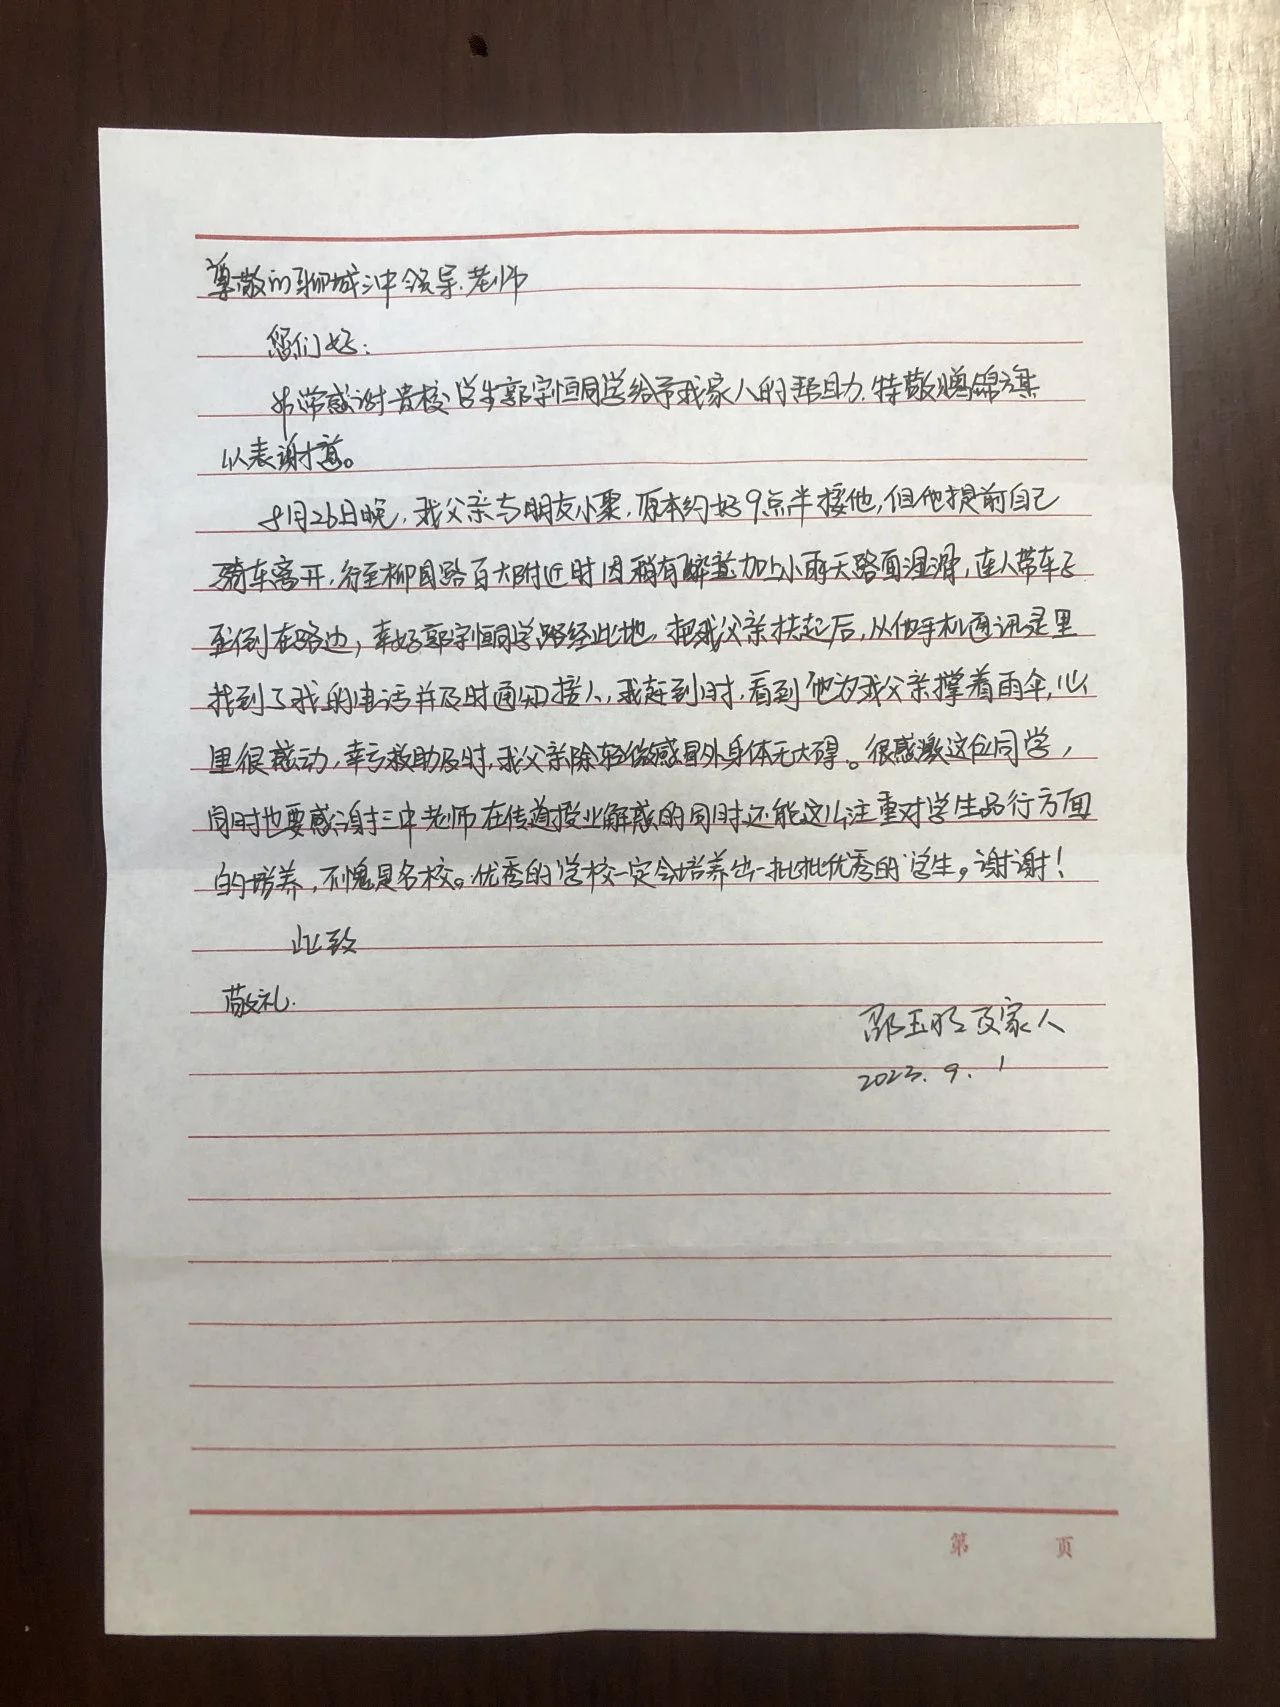 尊敬的聊城三中领导.老师
您们好:
非常感谢贵校学生郭宇恒同学给予我家人的帮助,特敬赠锦旗
以表谢意。
8月26日晚,我父亲与朋友小聚,原本约好9点半接他,但他提前自己
骑车离开,行至柳园路百大附近时因稍有醉意加上小雨天路面湿滑,连人带车
至倒在路边,幸好郭宇恒同学路经此地,把我父亲扶起后,从他手机通讯录里
找到了我的电话并及时通知接人,我赶到时,看到他为我父亲撑着雨伞,心
里很感动,幸亏救助及时,我父亲除轻微感冒外身体无大碍。很感激这位同学,
同时也要感谢三中老师在传道授业解惑的同时还能这么注重对学生品行方面
的培养,不愧是名校。优秀的学校一定会培养出一批批优秀的学生。谢谢!
此致
敬礼.
邵玉 及家人
2023.9.1
第 页